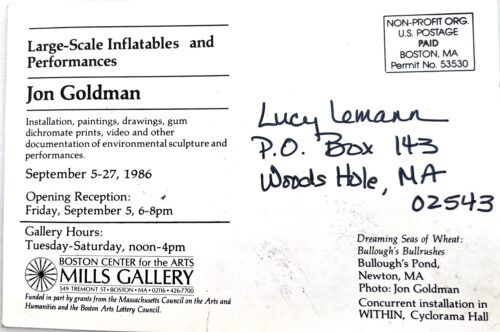 Large-Scale Inflatables and
Performances
Jon Goldman
Installation, paintings, drawings, gum
dichromate prints, video and other
documentation of environmental sculpture and
performances.
September 5-27, 1986
Opening Reception:
Friday, September 5, 6-8pm
Gallery Hours:
Tuesday-Saturday, noon-4pm
BOSTON CENTER for the ARTS
MILLS GALLERY
549 TREMONT ST • BOSTON • MA • 02116 • 426-7700
Funded in part by grants from the Massachusetts Council on the Arts and
Humanities and the Boston Arts Lottery Council.
NON-PROFIT ORG.
U.S. POSTAGE
PAID
BOSTON, MA
Permit No. 53530
Lucy Lemann
P.O. Box 143
Woods Hole, MA
02543
Dreaming Seas of Wheat:
Bullough's Bullrushes
Bullough's Pond,
Newton, MA
Photo: Jon Goldman
Concurrent installation in
WITHIN, Cyclorama Hall